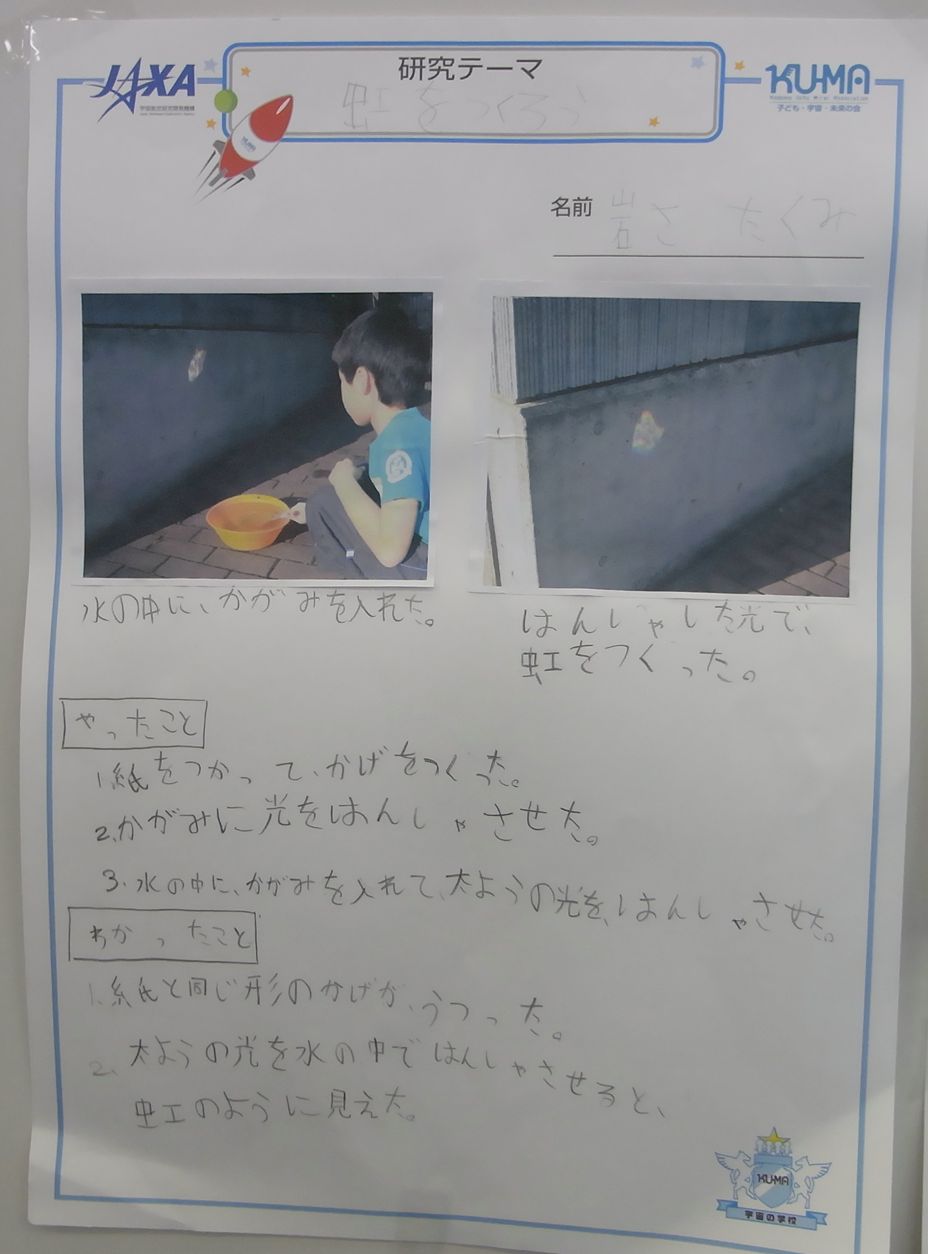 JAXA
宇宙航空研究開発機構
研究テーマ
虹をつくろう
KU-MA
子ども・宇宙・未来の会
KU-MA
名前 岩さ たくみ
水の中に、かがみを入れた。
はんしゃした光で、
虹をつくった。
やったこと
1.紙をつかって、かげをつくった。
2.かがみに光をはんしゃさせた。
3.水の中に、かがみを入れて、太ようの光を、はんしゃさせた。
わかったこと
1.紙と同じ形のかげが、うつった。
2.太ようの光を水の中ではんしゃさせると、
虹のように見えた。
KU-MA
宇宙の学校